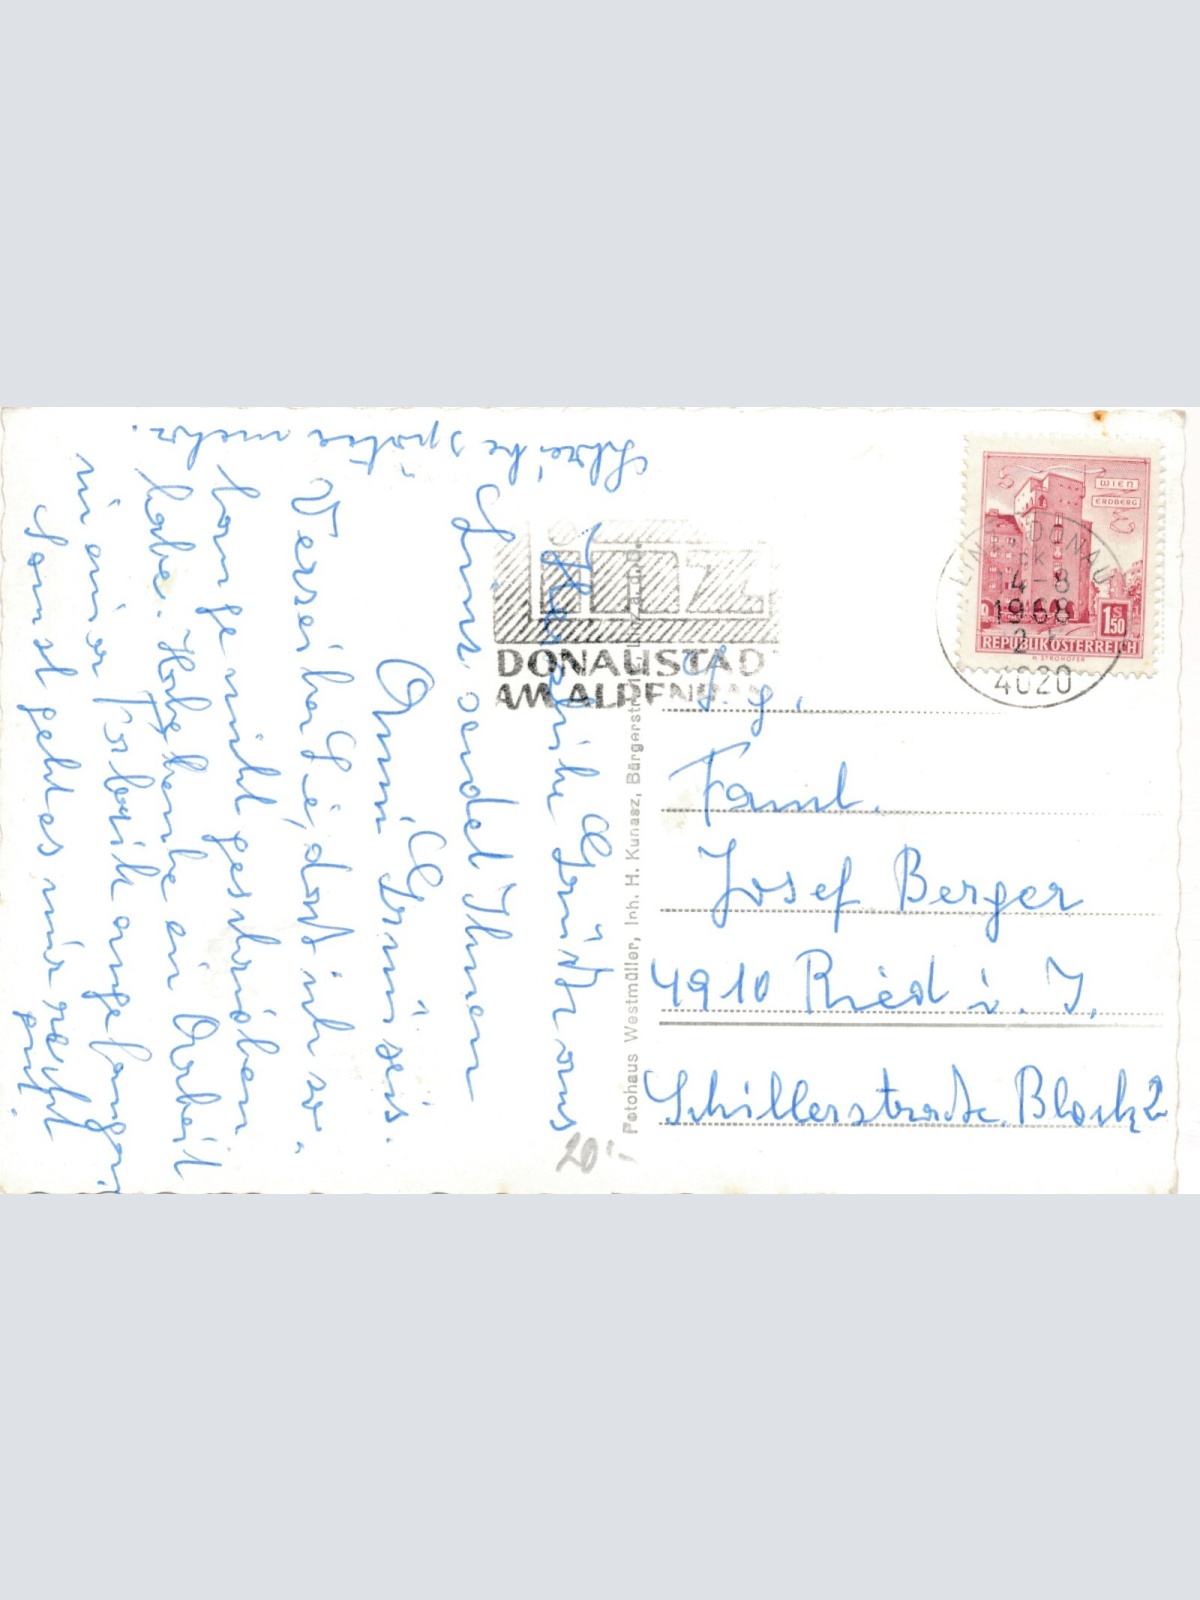 Herzliche Grüße aus
Linz sendet Ihnen
Anni Grünseis.
Verzeihen Sie, daß ich so
lange nicht geschrieben
habe. Habe heute die Arbeit
in einer Fabrik angefangen.
Sonst geht es mir recht
gut.
Schreibe später mehr.
Linz
DONAUSTADT
AM ALPENRAND
LINZ DONAU
14-8
1968
4020
WIEN
ERDBERG
1 S 50
REPUBLIK ÖSTERREICH
H. STROHOFER
Fotohaus Westmüller, Inh. H. Kunasz, Bürgerstr. Linz a.d.D.
S. g.
Faml.
Josef Berger
4910 Ried i. I.
Schillerstraße Block 2
20'-